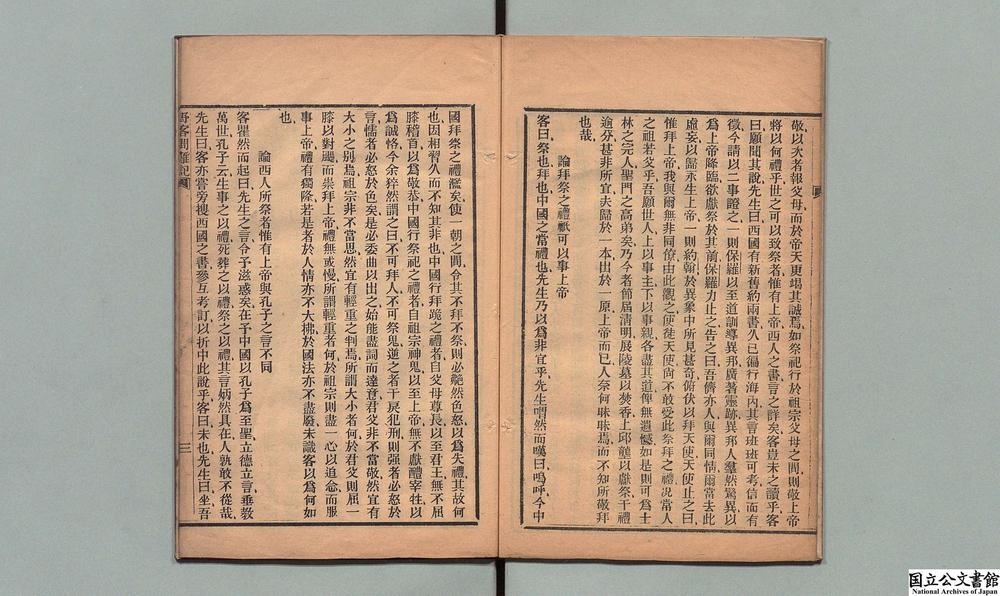 敬以次者報父母而於帝天更竭其誠焉如祭祀行於祖宗父母之間則敬上帝
將以何禮乎世之可以致祭者惟有上帝西人之書言之詳矣客豈未之讀乎客
曰願聞其說先生曰西國有新舊約兩書久已徧行海內其言班班可考信而有
徵今請以二事證之一則保羅以至道訓導異邦廣著靈跡異邦人羣然驚異以
爲上帝降臨欲獻祭於其前保羅力止之告之曰吾儕亦人與爾同情爾當去此
虛妄以歸永生上帝一則約翰於異象中所見甚奇俯伏以拜天使天使止之曰
惟拜上帝我與爾無非同僚由此觀之使徒天使尚不敢受此祭拜之禮况當人
之祖若父乎吾願世人上以事主下以事親各盡其道俾無遺憾如是則可爲士
林之完人聖門之高弟矣乃今者節屆清明展陵墓以焚香上邱壟以獻祭干禮
逾分甚非所宜夫歸於一本出於一原上帝而已人奈何昧昧焉而不知所敬拜
也哉
論拜祭之禮祇可以事上帝
客曰祭也拜也中國之當禮也先生乃以爲非宜乎先生喟然而嘆曰嗚呼今中
國拜祭之禮濫矣使一朝之間令其不拜不祭則必艴然色怒以爲失禮其故何
也因相習久而不知其非也中國行拜跪之禮者自父母尊長以至君王無不屈
膝稽首以爲敬恭中國行祭祀之禮者自祖宗神鬼以至上帝無不獻醴宰牲以
爲誠恪今余猝然謂之曰不可拜人不可祭鬼逆之者干戾犯刑則强者必怒於
言懦者必怒於色矣是必委曲以出之始能盡詞而達意君父非不當敬然宜有
大小之別焉祖宗非不當思然宜有輕重之判焉所謂大小者何於君父則屈一
膝以對颺而崇拜上帝禮無或慢所謂輕重者何於祖宗則盡一心以追念而服
事上帝禮有獨隆若是者於人情亦不大拂於國法亦不盡廢未識客以爲何如
也
論西人所祭者惟有上帝與孔子之言不同
客瞿然而起曰先生之言令予滋惑矣在予中國以孔子爲至聖立德立言垂敎
萬世孔子云生事之以禮死葬之以禮祭之以禮其言炳然具在人孰敢不從哉
先生曰客亦嘗旁搜西國之書參互考訂以折中此說乎客曰未也先生曰坐吾
三
国立公文書館
National Archives of Japan